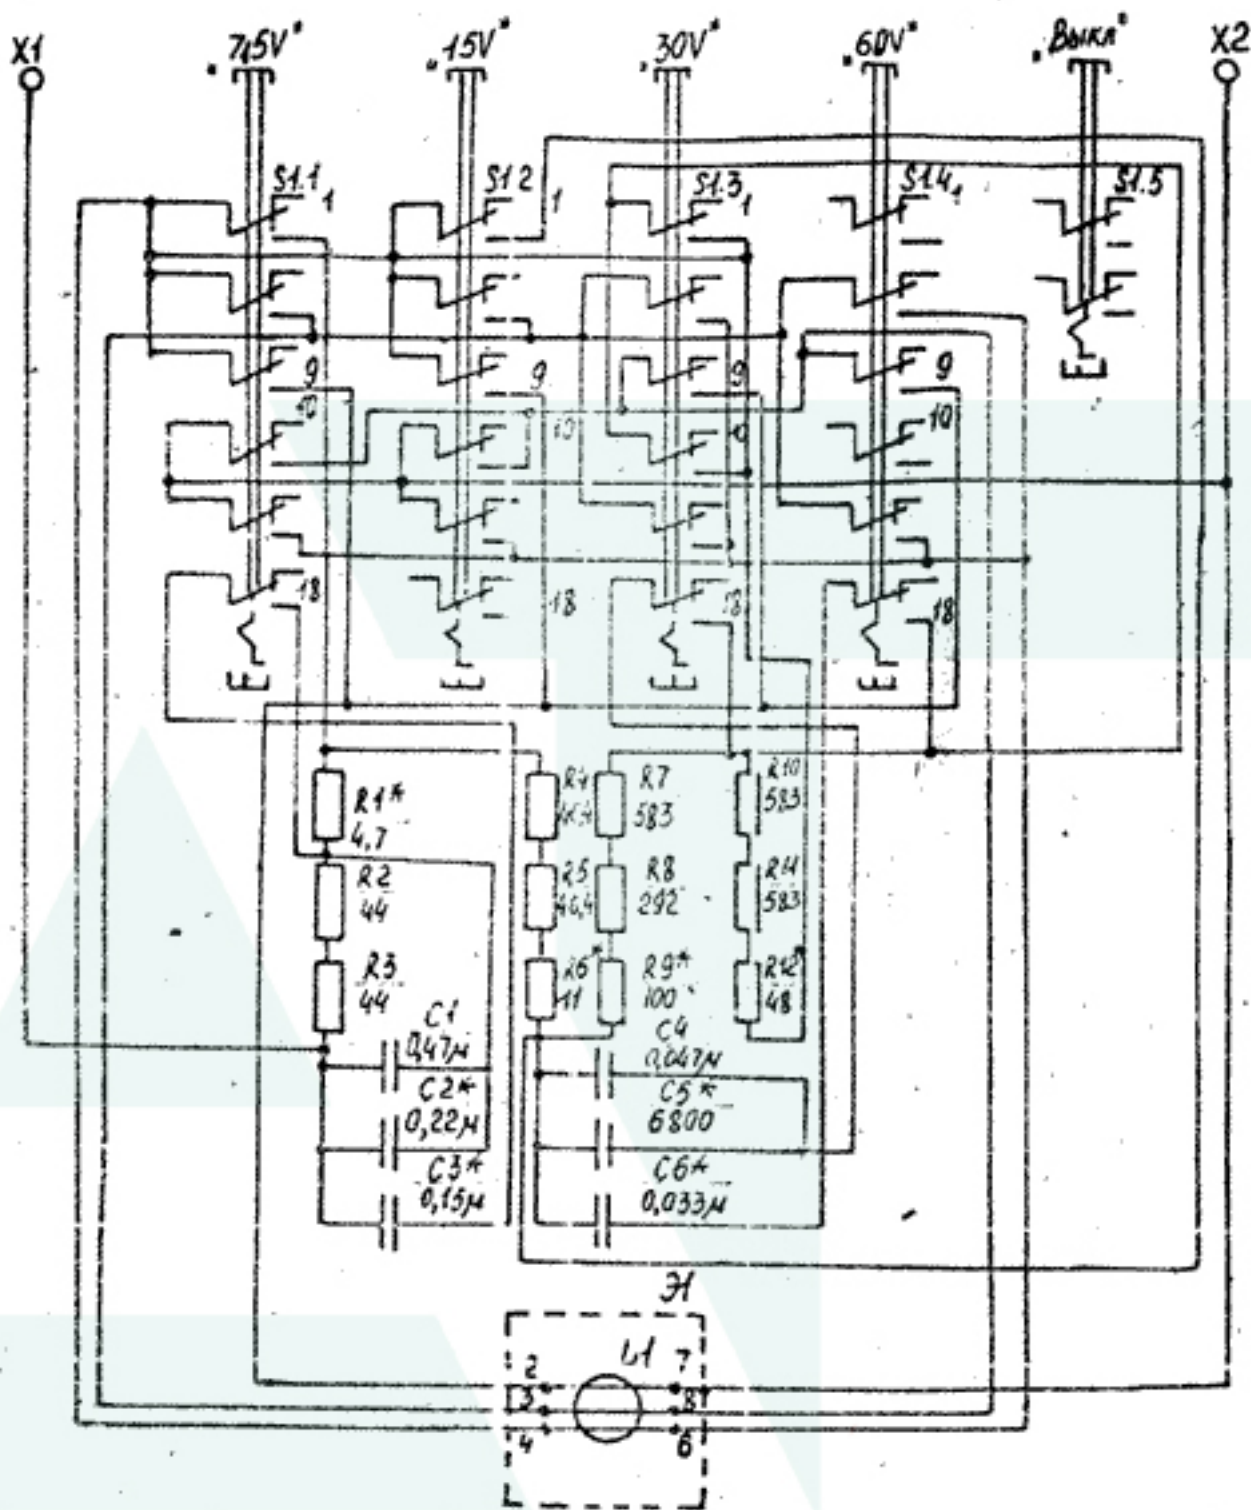 X1
"7,5V"
"15V"
"30V"
"60V"
"Выкл"
X2
S1.1
1
S1.2
1
S1.3
1
S1.4
1
S1.5
9
9
9
9
10
10
10
18
18
18
18
R1*
4,7
R2
44
R3
44
R4
R5
R6*
11
R7
583
R8
292
R9*
100
R10
583
R11
583
R12*
48
C1
0,47м
C2*
0,22м
C3*
0,15м
C4
0,047м
C5*
6800
C6*
0,033м
Э1
L1
2
7
3
8
4
6